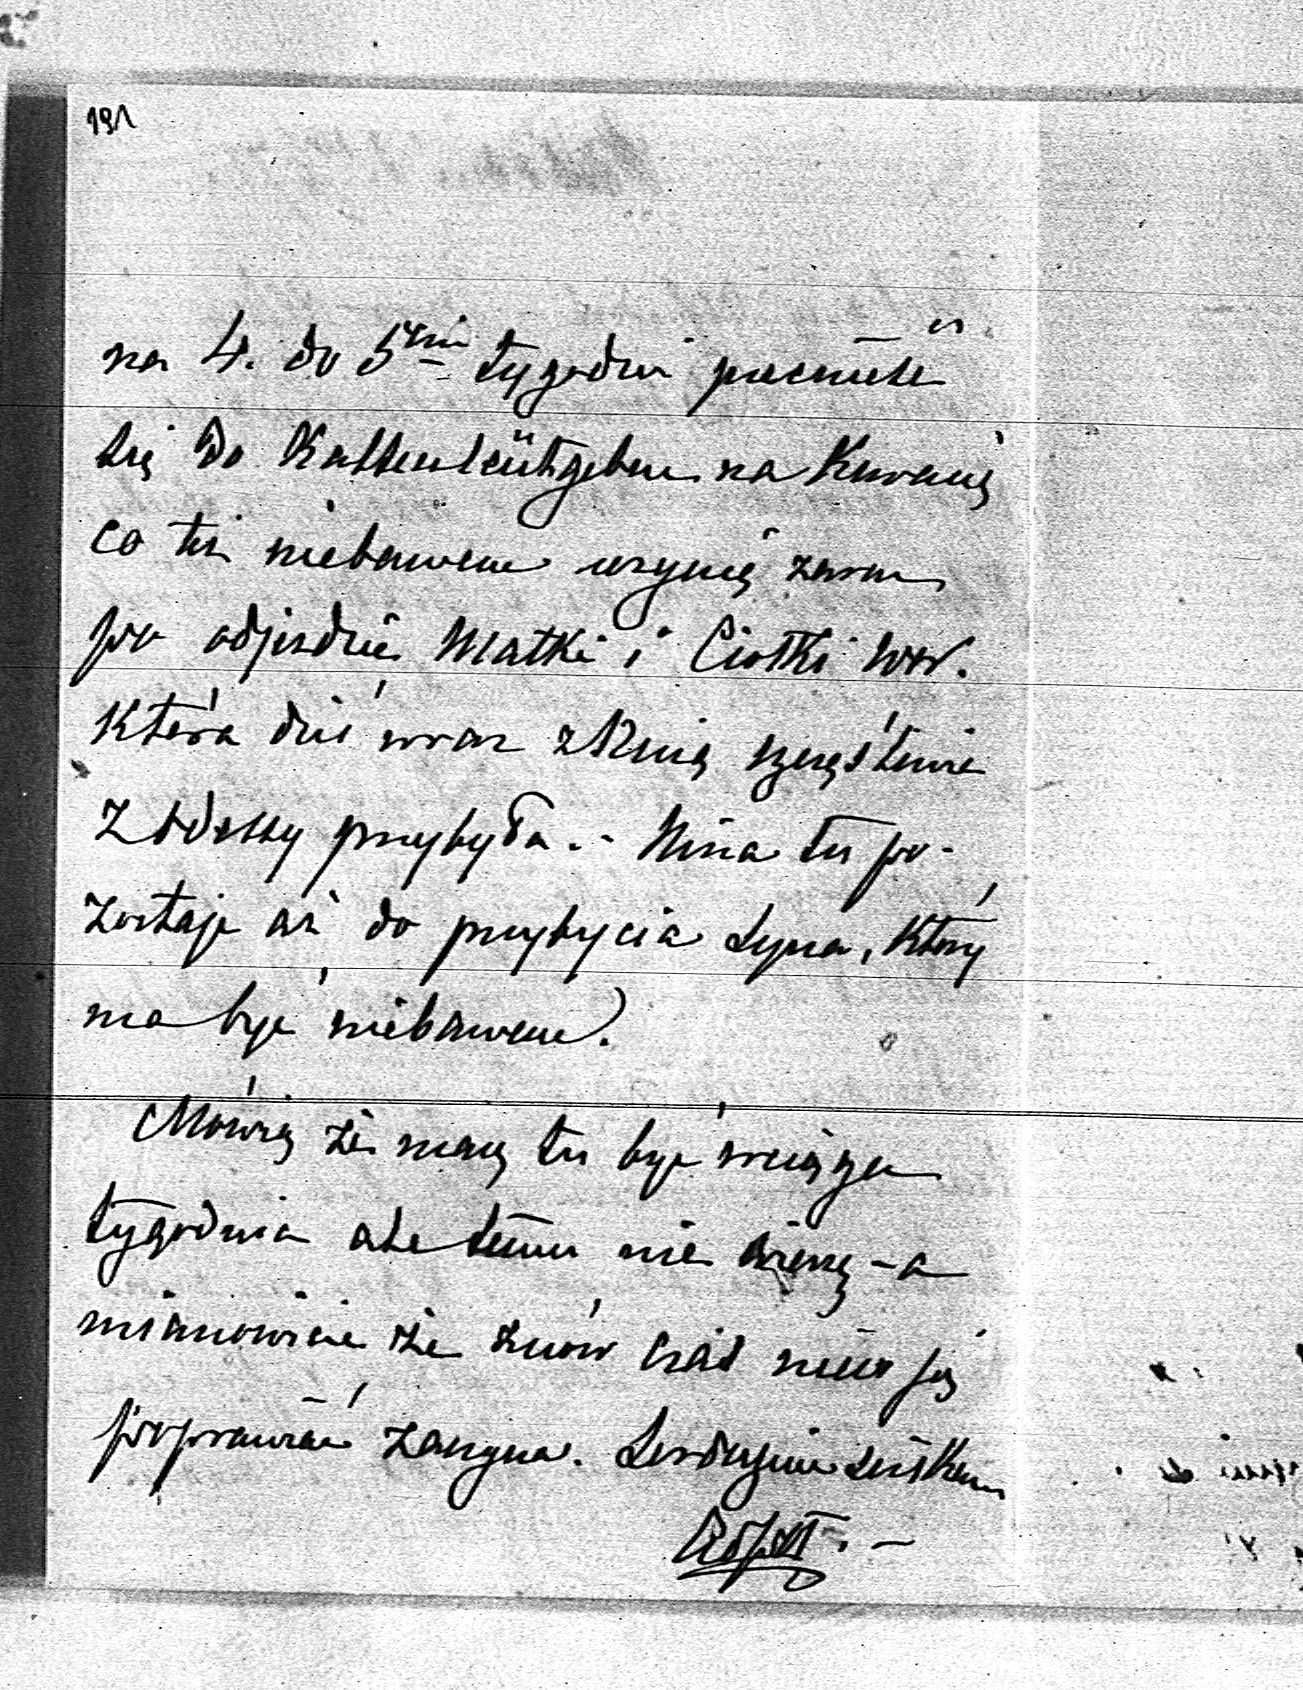 191
na 4. do 5ciu tygodni przenieść
się do Kaltenleutgeben na Kuracyę
co też niebawem uczynię zaraz
po odjeździe Matki i Ciotki
Która dziś wraz z Niną szczęśliwie
z Odessy przybyła. - Nina tu po-
zostaje aż do przybycia Syna, Który
ma być niebawem.
Mówią że mają tu być w ciągu
tygodnia ale temu nie wierzę - a
mianowicie że znów czas nieco się
poprawiać zaczyna. Serdecznie ściskam